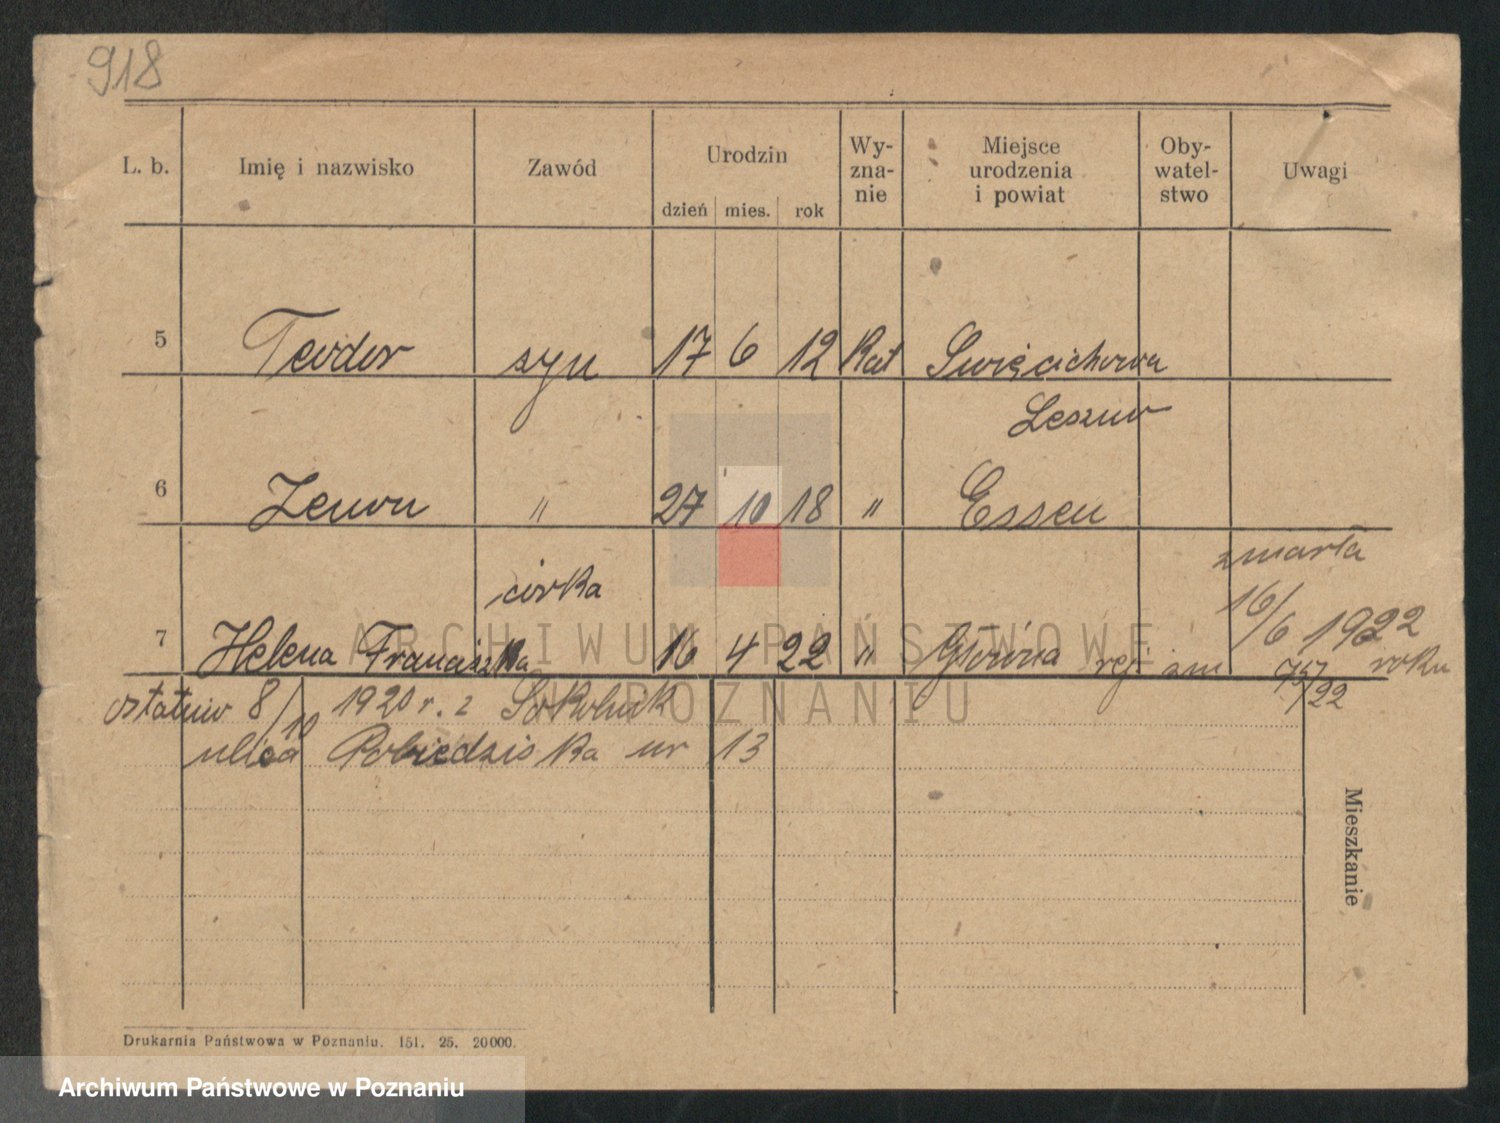 918
L. b. Imię i nazwisko Zawód Urodzin dzień mies. rok Wy-zna-nie Miejsce urodzenia i powiat Oby-watel-stwo Uwagi
5 Teodor syn 17 6 12 Kat Święcichowa
Leszno
6 Zenon " 27 10 18 " Essen
zmarła
córka 16/6 1922
7 Helena Franciszka 16 4 22 " Główna rej. zm 75/22 roku
ostatnio 8/10 1920 r. z Sokolnik
ulica Pobiedziska nr 13
Mieszkanie
ARCHIWUM PAŃSTWOWE
W POZNANIU
Drukarnia Państwowa w Poznaniu. 151. 25. 20000.
Archiwum Państwowe w Poznaniu